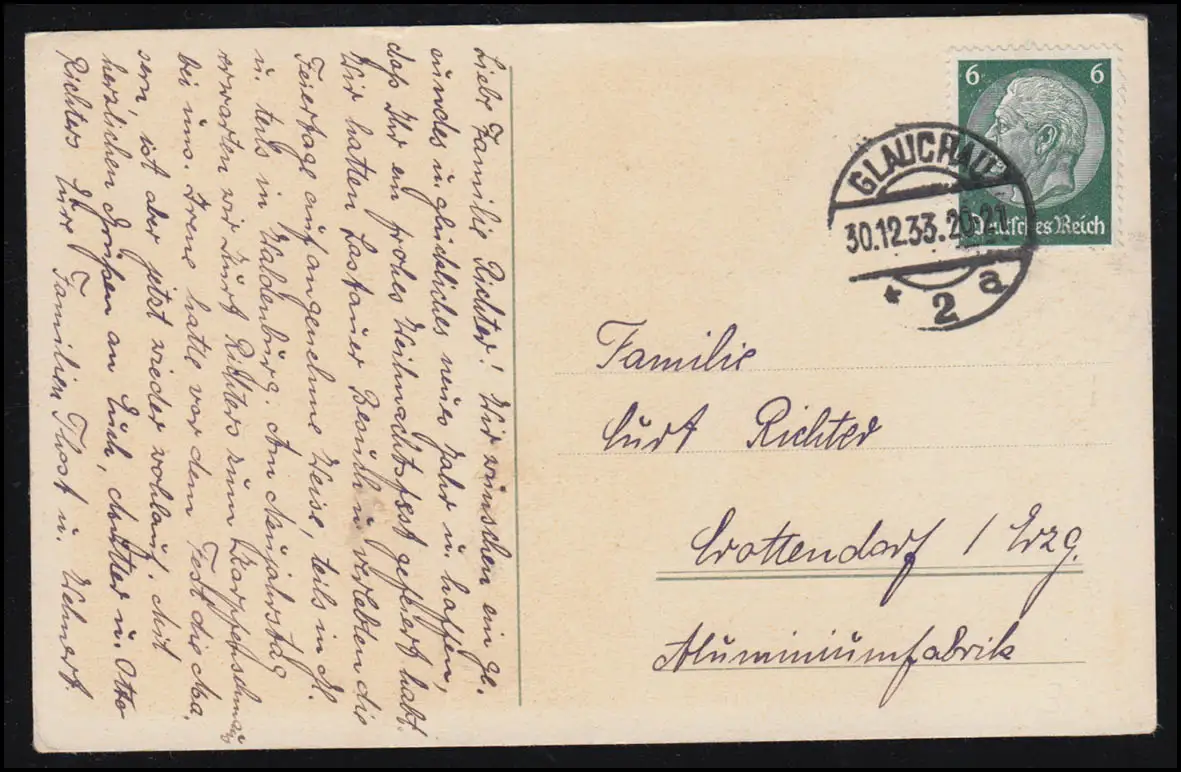 Liebe Familie Richter! Wir wünschen ein ge.
sundes u. glückliches neues Jahr u. hoffen,
daß Ihr ein frohes Weihnachtsfest gefeiert habt.
Wir hatten Besuch u. verlebten die
Feiertage auf angenehme Weise, teils in
u. teils in Waldenburg. Am Neujahrstag
erwarten wir Kurt Richters zum Karpfenschmaus
bei uns. Irene hatte vor dem Fest die Ma.
sern, ist aber jetzt wieder wohlauf. Mit
herzlichen Grüßen an Euch, Mutter u. Otto
Richters Eure Familien Thost u. Wehnert.
6 6
Deutsches Reich
GLAUCHAU
30.12.33.20-21
* 2 a
Familie
Curt Richter
Crottendorf / Erzg.
Aluminiumfabrik